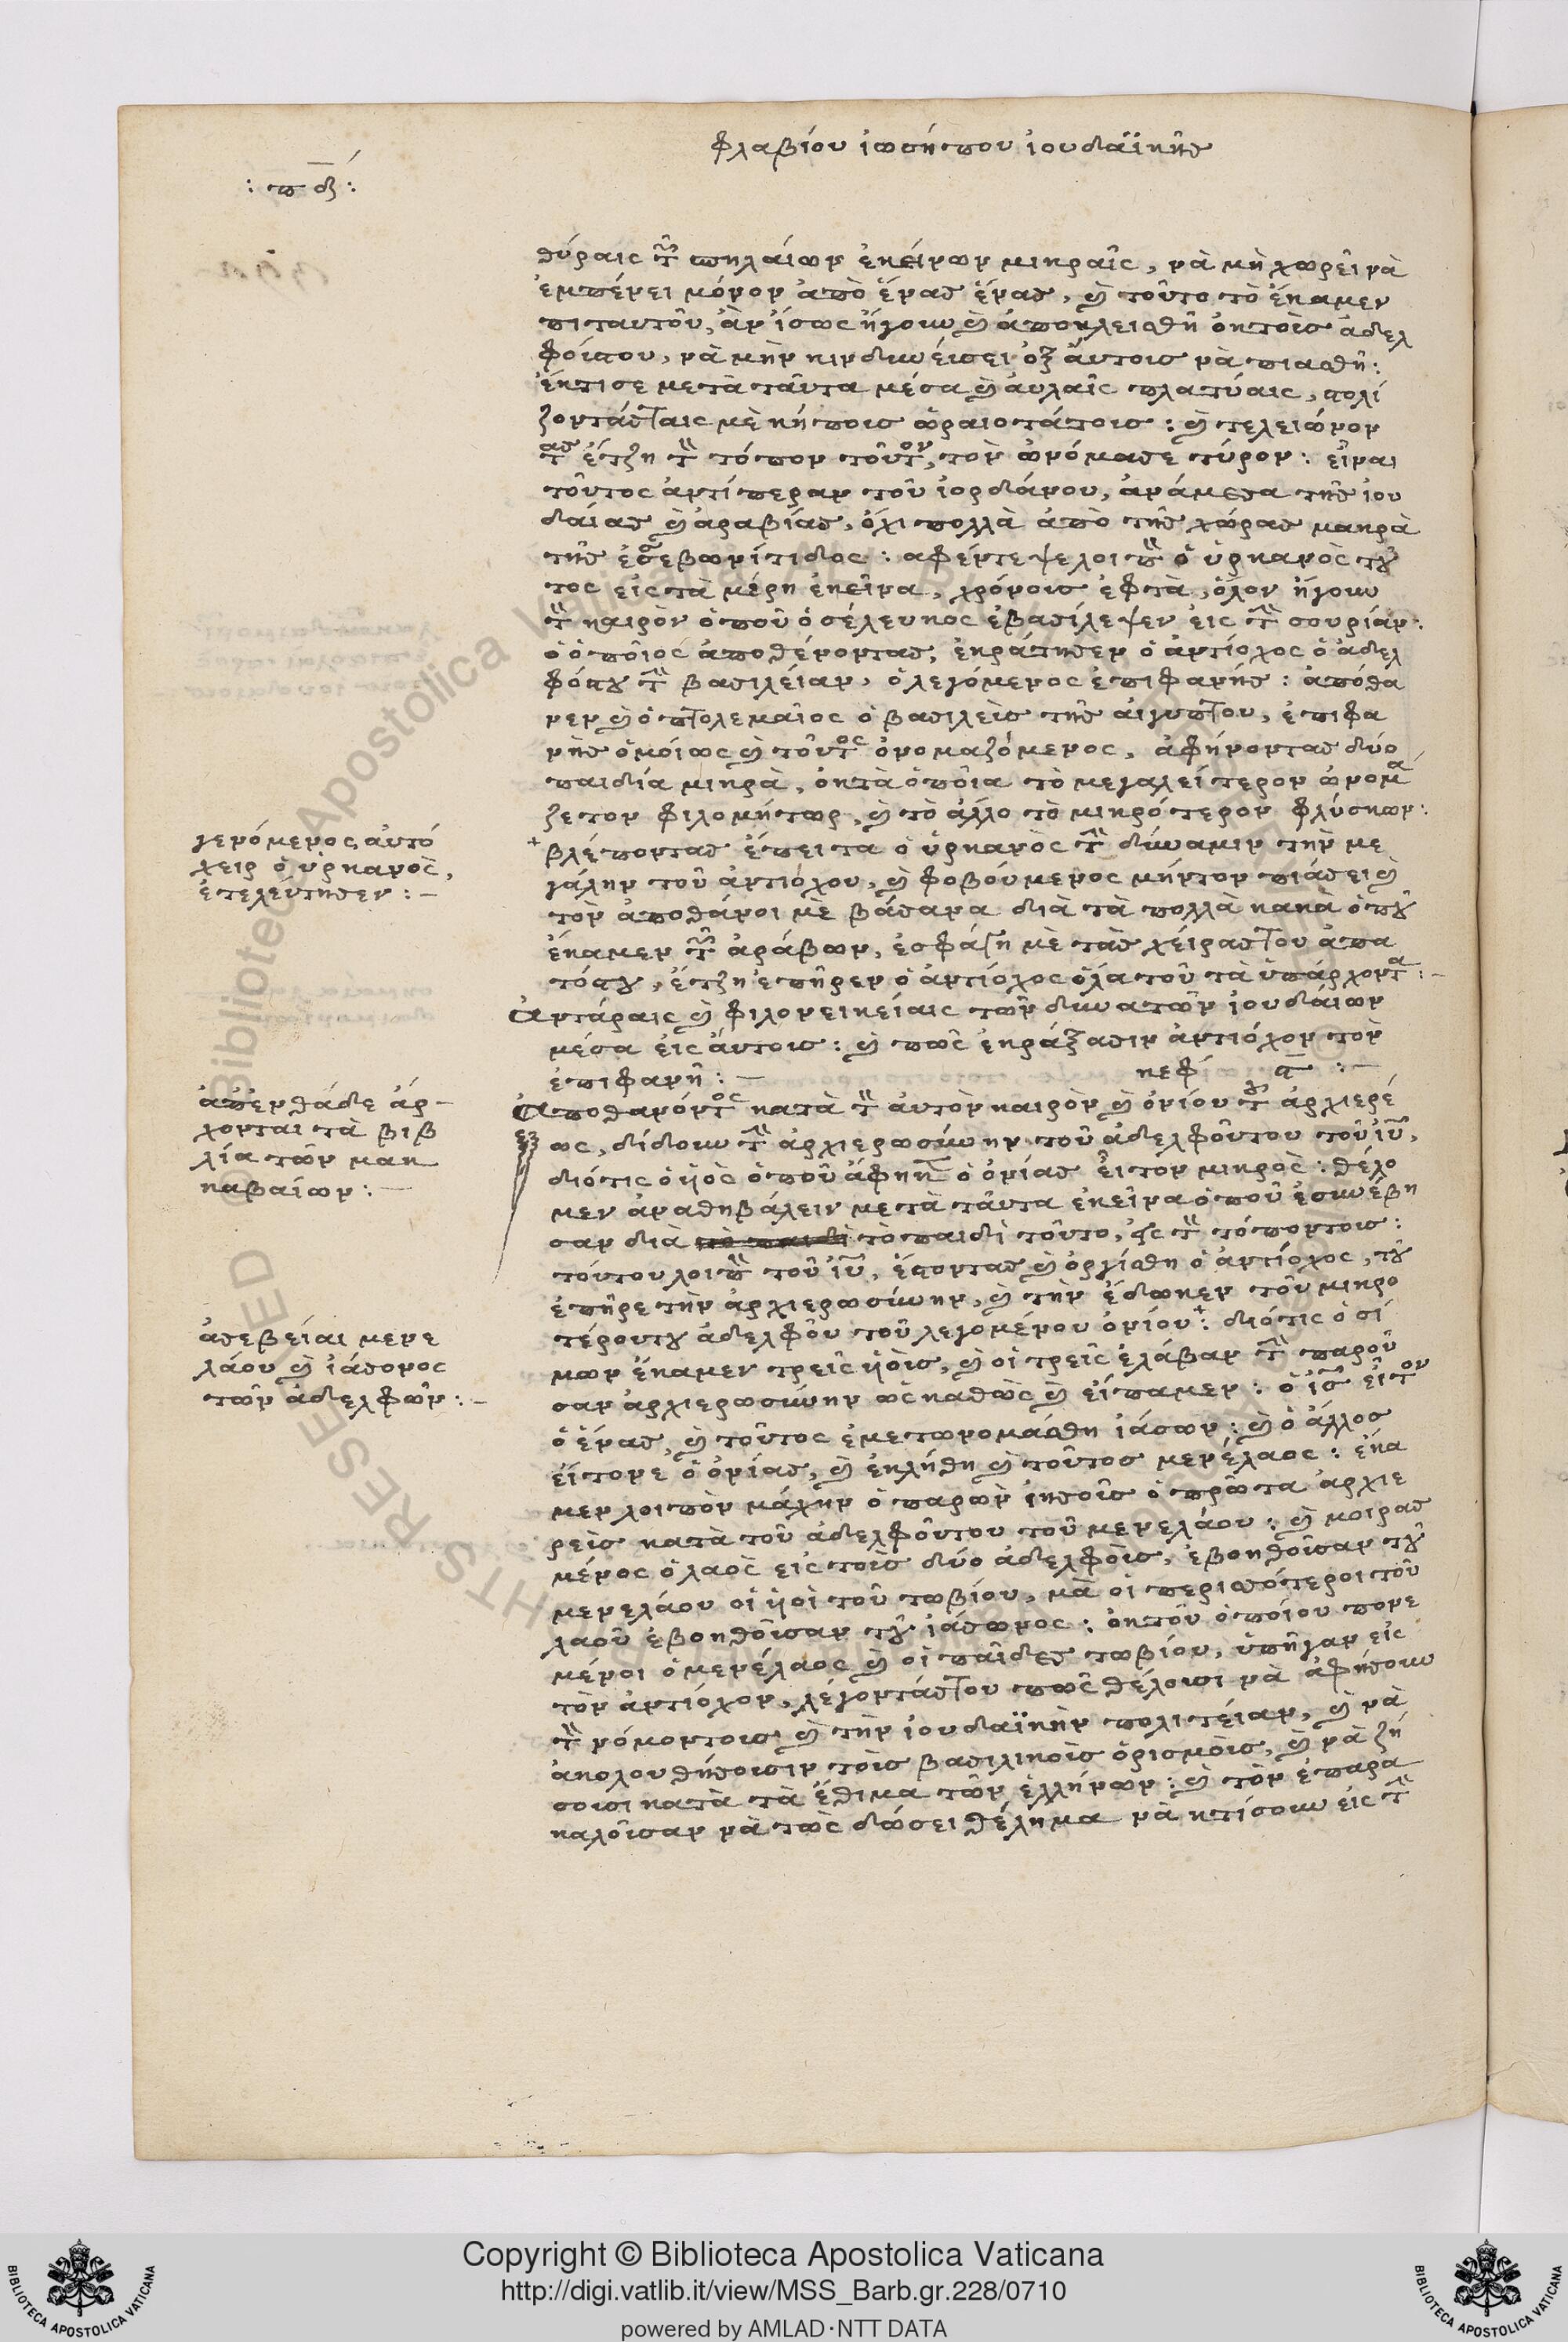 φλαβίου ἰωσήπου ἰουδαϊκῆσ
: πδ :
θύραις τῶν σπηλαίων ἐκείνων μικραῖς, νὰ μὴ χωρεῖ νὰ
ἐμπένει μόνον ἀπὸ ἕνασ ἕνασ, καὶ τοῦτο τὸ ἔκαμεν
πιταυτοῦ, ἂν ἴσως ἤγουν καὶ ἀποκλεισθῆ ὀκτοὶσ ἀδελ
φοίτου, νὰ μὴν κινδυνεύσει ὀξ αὐτοισ νὰ πιασθῆ:
ἔκτισε μετὰ ταῦτα μέσα καὶ ἀυλαῖς πλατύαις, στολί
ζοντάσταις μὲ κήποισ ὡραιοτάτοισ: καὶ τελειώνον
τασ ἔτζη τὸν τόπον τοῦτον, τὸν ὠνόμασε τύρον: εἶναι
τοῦτος ἀντίπεραν τοῦ ἰορδάνου, ἀνάμεσα τῆσ ἰου
δαίασ καὶ ἀραβίασ, ὄχι πολλὰ ἀπὸ τῆσ χώρασ μακρὰ
τῆσ ἐσσεβωνίτιδος: αφέντεψε λοιπὸν ὁ ὑρκανὸς τοῦ
τος εἰς τὰ μέρη ἐκεῖνα, χρόνοισ ἐφτὰ, ὅλον ἤγουν
τὸν καιρὸν ὁποῦ ὁ σέλευκος ἐβασίλεψεν εἰς τὴν σουρίαν:
ὁ ὁποῖος ἀποθένοντασ, ἐκράτησεν ὁ ἀντίοχος ὁ ἀδελ
φόςτου τὴν βασιλείαν, ὁ λεγόμενος ἐπιφανήσ: ἀπόθα
νεν καὶ ὁ πτολεμαῖος ὁ βασιλεὶσ τῆσ αἰγυπτου, ἐπιφα
νὴσ ὁμοίως καὶ τοῦτος ὀνομαζόμενος, ἀφήνοντασ δύο
παιδία μικρὰ, ὀκτὰ ὁποῖα τὸ μεγαλείτερον ὠνομά
ζετον φιλομήτωρ, καὶ τὸ ἄλλο τὸ μικρότερον φλύσκων:
+ βλέποντασ ἔπειτα ὁ ὑρκανὸς τὴν δύναμιν τὴν με
γάλην τοῦ ἀντιόχου, καὶ φοβούμενος μήντον πιάσει καὶ
τὸν ἀποθάνοι μὲ βάσανα διὰ τὰ πολλὰ κακὰ ὁποῦ
ἔκαμεν τῶν ἀράβων, ἐσφάγη μὲ τὰσ χείραστου ἀπα
τόςτου, ἔτζη ἐπῆρεν ὁ ἀντίοχος ὅλα τοῦ τὰ ὑπάρχοντα: –
Ἀντάραις καὶ φιλονεικείαις τῶν δυνατῶν ἰουδαίων
μέσα εἰς αὐτοισ: καὶ πῶς ἐκράξασιν ἀντίοχον τὸν
ἐπιφανῆ: – κεφ ϛ: –
Ἀποθανόντος κατὰ τὸν αὐτὸν καιρὸν καὶ ὀνίου τοῦ ἀρχιερέ
ως, δίδουν τὴν ἀρχιερωσύνην τοῦ ἀδελφοῦντου τοῦ ἰῦ,
διότις ὁ ὑιὸς ὁποῦ ἄφηκεν ὁ ὀνίασ εἶτον μικρὸς: θέλο
μεν ἀναθηβάλειν μετὰ ταῦτα ἐκεῖνα ὁποῦ ἐσυνέβη
σαν διὰ τὸ παιδὶ τὸ παιδὶ τοῦτο, εἰς τὸν τόποντοισ:
τούτου λοιπὸν τοῦ ἰῦ, ἔσοντασ καὶ ὀργίσθη ὁ ἀντίοχος, τοῦ
ἐπῆρε τὴν ἀρχιερωσύνην, καὶ τὴν ἔδωκεν τοῦ μικρο
τέρουντου ἀδελφοῦ τοῦ λεγομένου ὀνίου+: διότις ὁ σί
μων ἔκαμεν τρεῖς ὑιὸισ, καὶ οἱ τρεῖς ἐλάβαν τὴν παροῦ
σαν ἀρχιερωσύνην ὡς καθὼς καὶ εἴπαμεν: ὁ ἰς εἶτον
ὁ ἕνασ, καὶ τοῦτος ἐμετωνομάσθη ἰάσων: καὶ ὁ ἄλλοσ
εἶτονε ὁ ὀνίασ, καὶ ἐκλήθη καὶ τοῦτοσ μενέλαος: ἔκα
μεν λοιπὸν μάχην ὁ παρὼν ἰησοῖσ ὁ πρῶτα ἀρχιε
ρεὶσ κατὰ τοῦ ἀδελφοῦντου τοῦ μενελάου: καὶ μοιρασ
μένος ὁ λαὸς εἰς τοὶσ δύο ἀδελφοὶσ, ἐβοηθοῖσαν τοῦ
μενελάου οἱ ὑιοὶ τοῦ τωβίου, μὰ οἱ περισσότεροι τοῦ
λαοῦ ἐβοηθοῖσαν τοῦ ἰάσωνος: ὀκτοῦ ὁποίου πονε
μένοι ὁ μενέλαος καὶ οἱ παῖδεσ τωβίου, ὑπῆγαν εἰς
τὸν ἀντίοχον, λέγοντάστου πῶς θέλουσι νὰ ἀφήσουν
τὸν νόμοντοισ καὶ τὴν ἰουδαϊκὴν πολιτείαν, καὶ νὰ
ἀκολουθήσοισιν τοὶσ βασιλικοὶσ ὁρισμοὶσ, καὶ νὰ ζή
σοισι κατὰ τὰ ἔθιμα τῶν ἑλλήνων: καὶ τὸν ἐπαρα
καλοῖσαν νὰ τῶς δώσει θέλημα νὰ κτίσουν εἰς τὴν
γενόμενος αὐτό
χειρ ὁ ὑρκανὸς,
ἐτελεύτησεν: –
ἀπενθάδε ἄρ–
χονται τὰ βιβ
λία τῶν μακ
καβαίων: –
ἀσεβείαι μενε
λάου καὶ ἰάσονος
τῶν ἀδελφῶν: –
Copyright © Biblioteca Apostolica Vaticana
http://digi.vatlib.it/view/MSS_Barb.gr.228/0710
powered by AMLAD·NTT DATA
BIBLIOTECA APOSTOLICA VATICANA
BIBLIOTECA APOSTOLICA VATICANA